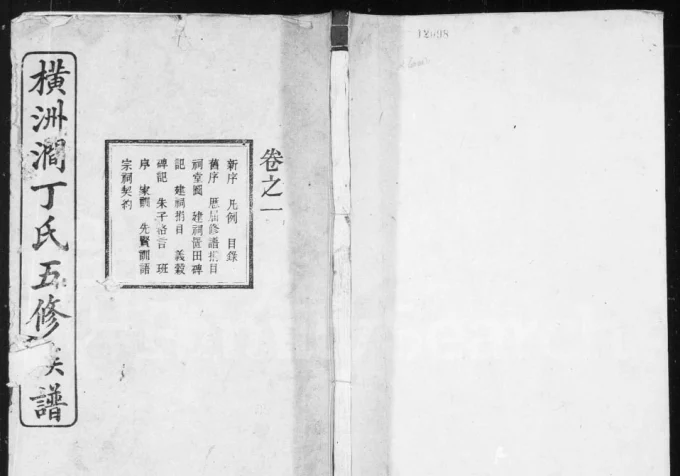 橫洲澗丁氏五修族譜
卷之一
新序 凡例 目錄
舊序 歷屆修譜捐目
祠堂圖 建祠置田碑
記 建祠捐目 義穀
碑記 朱子格言 班
序 家訓 先賢訓語
宗祠契約
18098